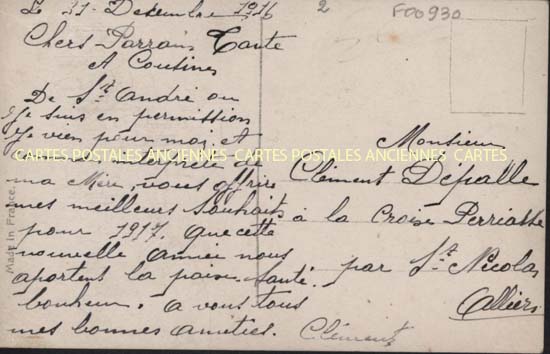 Le 31 Décembre 1916
2
F00930
Chers Parrain Tante
et Cousines
De St André ou
Je suis en permission
Je vien pour moi et
CARTES POSTALES ANCIENNES CARTES POSTALES ANCIENNES CARTES
interprète de
ma Mère, vous offrire
mes meilleurs Souhaits
pour 1917. que cette
nouvelle année nous
aportent la paix. Santé.
bonheur. a vous tous
mes bonnes amitiés. Clément
Monsieur
Clément Dépalle
à la Croise
par St Nicolas
Allier
Made in France.